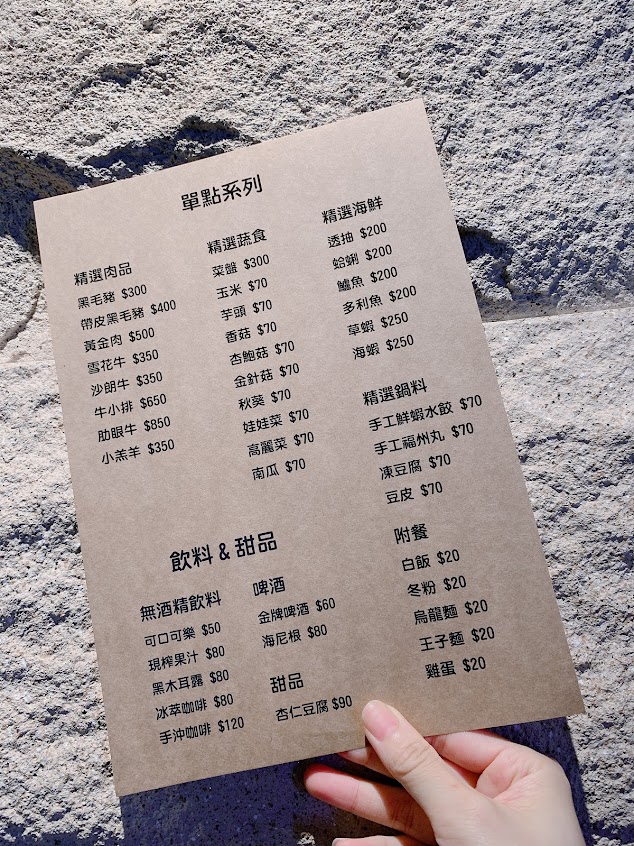 單點系列
精選肉品
黑毛豬 $300
帶皮黑毛豬 $400
黃金肉 $500
雪花牛 $350
沙朗牛 $350
牛小排 $650
肋眼牛 $850
小羔羊 $350
精選蔬食
菜盤 $300
玉米 $70
芋頭 $70
香菇 $70
杏鮑菇 $70
金針菇 $70
秋葵 $70
娃娃菜 $70
高麗菜 $70
南瓜 $70
精選海鮮
透抽 $200
蛤蜊 $200
鱸魚 $200
多利魚 $200
草蝦 $250
海蝦 $250
精選鍋料
手工鮮蝦水餃 $70
手工福州丸 $70
凍豆腐 $70
豆皮 $70
附餐
白飯 $20
冬粉 $20
烏龍麵 $20
王子麵 $20
雞蛋 $20
飲料 & 甜品
無酒精飲料
可口可樂 $50
現榨果汁 $80
黑木耳露 $80
冰萃咖啡 $80
手沖咖啡 $120
啤酒
金牌啤酒 $60
海尼根 $80
甜品
杏仁豆腐 $90